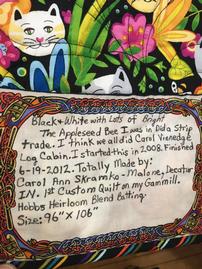 Black + White with Lots of Bright
The Appleseed Bee I was in Did a Strip
trade. I think we all did Carol Vrenedge
Log Cabin. I started this in 2008. Finished
6-19-2012. Totally Made by:
Carol Ann Skramko-Malone, Decatur
IN. 1st Custom Quilt on my Gammill.
Hobbs Heirloom Blend Batting.
Size: 96" X 106"